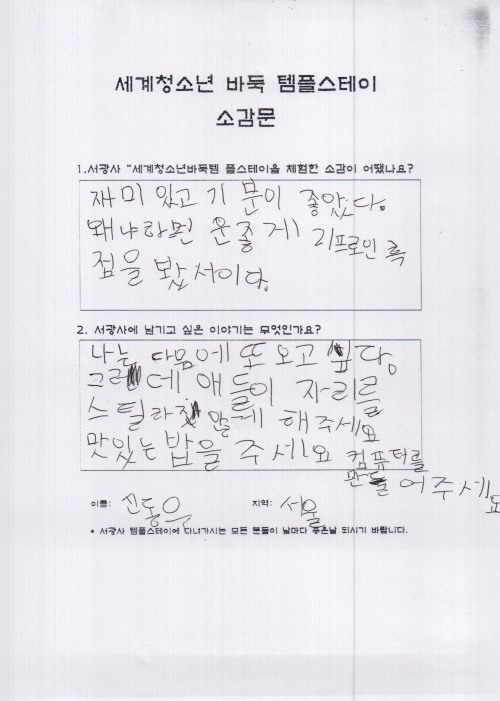 세계청소년 바둑 템플스테이
소감문
1.서광사 "세계청소년바둑템 플스테이를 체험한 소감이 어땠나요?
재미있고 기분이 좋았다.
왜냐하면 운좋게 리프로인 흑
점을 봤서이다.
2. 서광사에 남기고 싶은 이야기는 무엇인가요?
나는 다음에 또 오고 싶다.
그런데 애들이 자리를
스틸라지 않게 해주세요
맛있는 밥을 주세요 컴퓨터를
만들어주세요
이름: 진동우 지역: 서울
* 서광사 템플스테이에 다녀가시는 모든 분들이 날마다 좋은날 되시기 바랍니다.